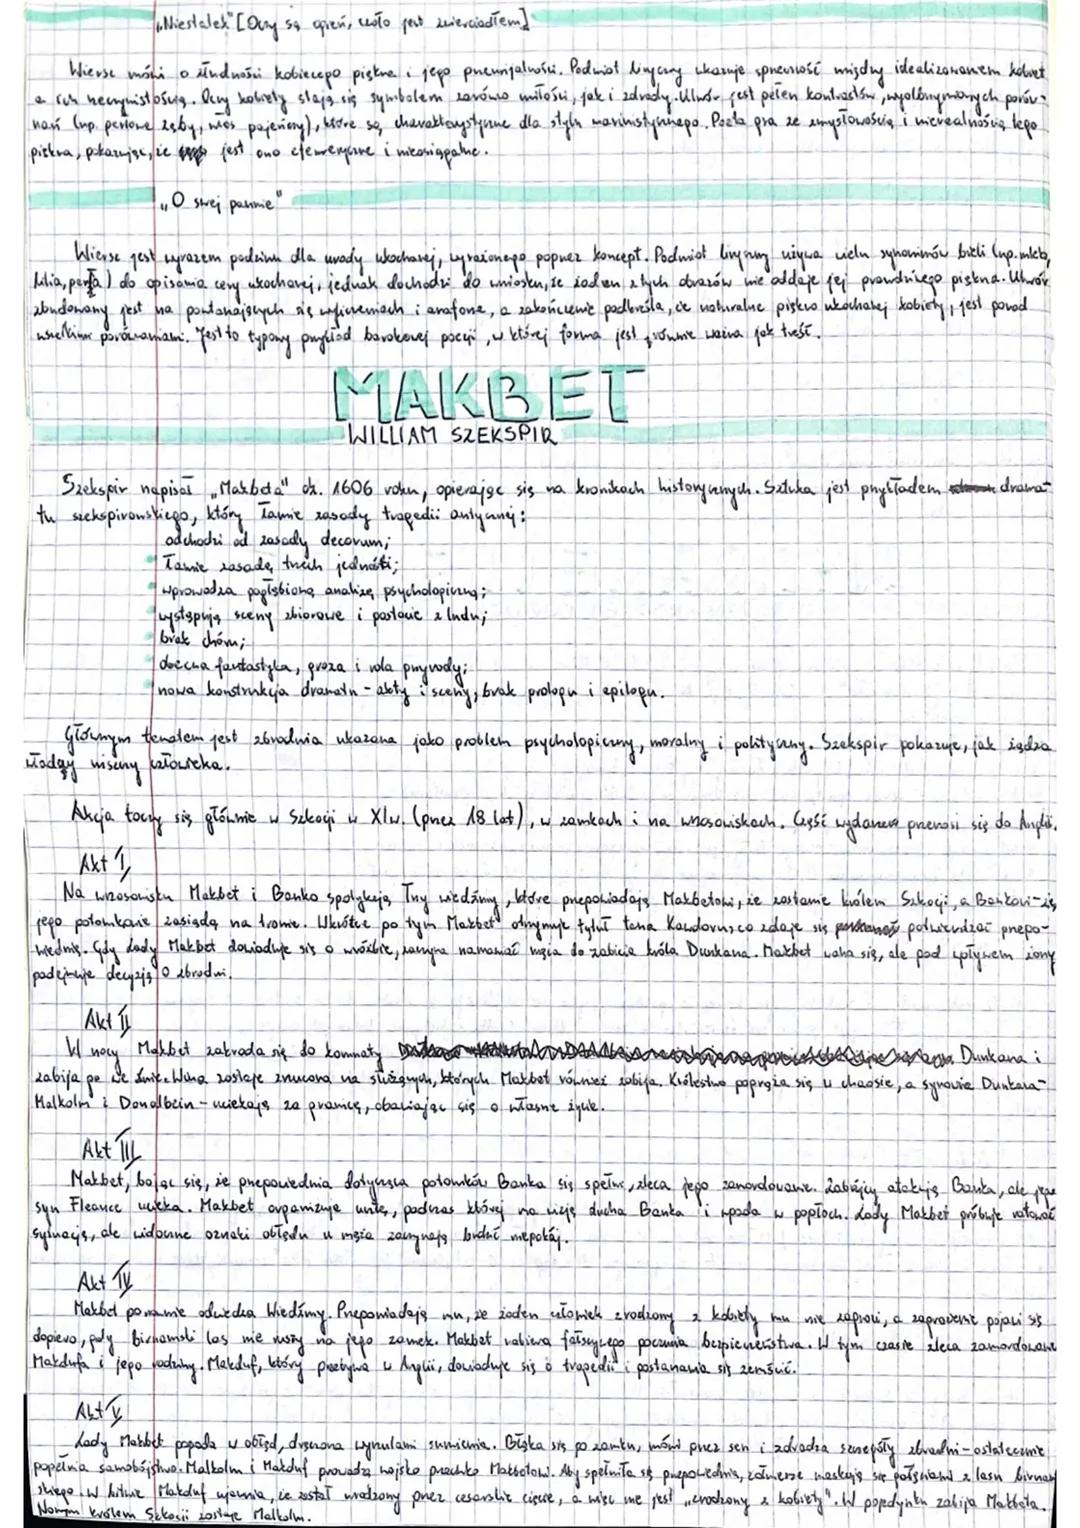 „Niestatek" [Oczy są ogień, czoło jest zwierciadłem]
Wiersz mówi o złudności kobiecego piękna i jego przemijalności. Podmiot liryczny ukazuje sprzeczność między idealizowaniem kobiet,
a ich rzeczywistością. Oczy kobiety stają się symbolem zarówno miłości, jak i zdrady. Utwór jest pełen kontrastów, wyolbrzymionych porów-
nań (np. perłowe zęby, włos pajęczy), które są charakterystyczne dla stylu marinistycznego. Poeta gra ze zmysłowością i nierealnością tego
piękna, pokazując, że jest ono efemeryczne i nieosiągalne.
„O swej pannie"
Wiersz jest wyrazem podziwu dla urody ukochanej, wyrażonego poprzez koncept. Podmiot liryczny używa wielu synonimów bieli (np. mleko,
lilia, perła) do opisania cery ukochanej, jednak dochodzi do wniosku, że żaden z tych obrazów nie oddaje jej prawdziwego piękna. Utwór
zbudowany jest na powtarzających się wyliczeniach i anaforze, a zakończenie podkreśla, że naturalne piękno ukochanej kobiety, jest ponad
wszelkimi porównaniami. Jest to typowy przykład barokowej poezji, w której forma jest równie ważna jak treść.
MAKBET
WILLIAM SZEKSPIR
Szekspir napisał „Makbeta" ok. 1606 roku, opierając się na kronikach historycznych. Sztuka jest przykładem drama-
tu szekspirowskiego, który łamie zasady tragedii antycznej:
odchodzi od zasady decorum;
łamie zasadę trzech jedności;
wprowadza pogłębioną analizę psychologiczną;
występują sceny zbiorowe i postacie z ludu;
brak chóru;
obecna fantastyka, groza i rola przyrody;
nowa konstrukcja dramatu - akty i sceny, brak prologu i epilogu.
Głównym tematem jest zbrodnia ukazana jako problem psychologiczny, moralny i polityczny. Szekspir pokazuje, jak żądza
władzy niszczy człowieka.
Akcja toczy się głównie w Szkocji w XI w. (przez 18 lat), w zamkach i na wrzosowiskach. Część wydarzeń przenosi się do Anglii.
Akt I
Na wrzosowisku Makbet i Banko spotykają Trzy wiedźmy, które przepowiadają Makbetowi, że zostanie królem Szkocji, a Bankowi-że
jego potomkowie zasiądą na tronie. Wkrótce po tym Makbet otrzymuje tytuł tana Kawdoru, co zdaje się potwierdzać przepo-
wiednię. Gdy Lady Makbet dowiaduje się o wróżbie, zaczyna namawiać męża do zabicia króla Dunkana. Makbet waha się, ale pod wpływem żony
podejmuje decyzję o zbrodni.
Akt II
W nocy Makbet zakrada się do komnaty Dunkana i
zabija go we śnie. Wina zostaje zrzucona na służących, których Makbet również zabija. Królestwo pogrąża się w chaosie, a synowie Dunkana-
Malkolm i Donalbein - uciekają za granicę, obawiając się o własne życie.
Akt III
Makbet, bojąc się, że przepowiednia dotycząca potomków Banka się spełni, zleca jego zamordowanie. Zabójcy atakują Banka, ale jego
syn Fleance ucieka. Makbet organizuje ucztę, podczas której na niej ducha Banka i wpada w popłoch. Lady Makbet próbuje ratować
sytuację, ale widoczne oznaki obłędu u męża zaczynają budzić niepokój.
Akt IV
Makbet ponownie odwiedza Wiedźmy. Przepowiadają mu, że żaden człowiek zrodzony z kobiety mu nie zagrozi, a zagrożenie pojawi się
dopiero, gdy birnamski las nie ruszy na jego zamek. Makbet nabiera fałszywego poczucia bezpieczeństwa. W tym czasie zleca zamordowanie
Makdufa i jego rodziny. Makduf, który przebywa w Anglii, dowiaduje się o tragedii i postanawia się zemścić.
Akt V
Lady Makbet popada w obłęd, dręczona wyrzutami sumienia. Błąka się po zamku, mówi przez sen i zdradza szczegóły zbrodni - ostatecznie
popełnia samobójstwo. Malkolm i Makduf prowadzą wojsko przeciwko Makbetowi. Aby spełniła się przepowiednia, żołnierze maskują się gałęziami z lasu birnam-
skiego. W bitwie Makduf ujawnia, że został urodzony przez cesarskie cięcie, a więc nie jest „zrodzony z kobiety". W pojedynku zabija Makbeta.
Nowym królem Szkocji zostaje Malkolm.